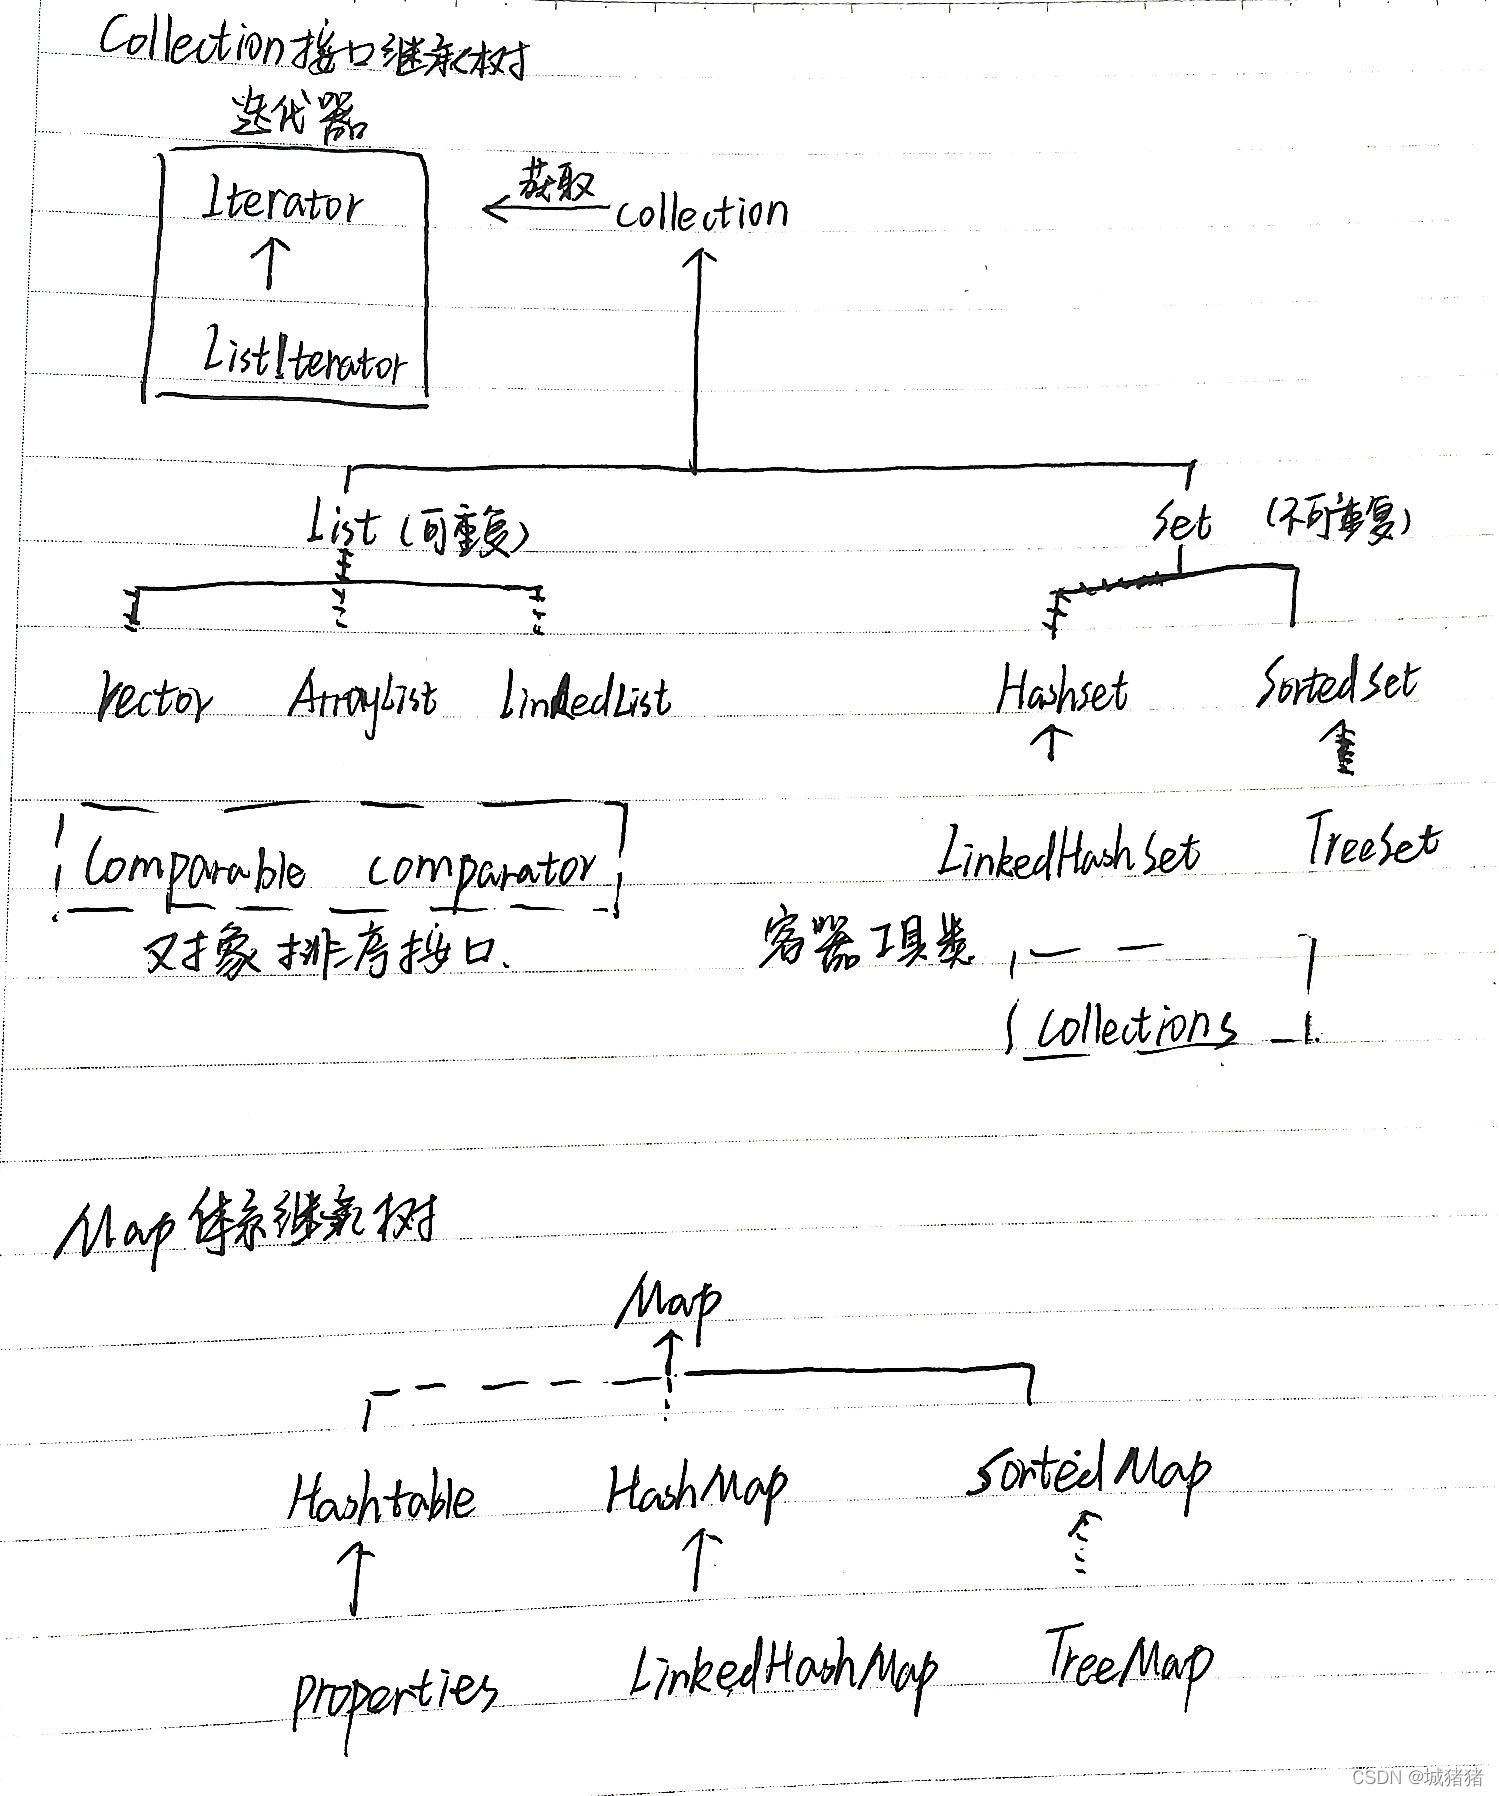 Collection接口继承树
迭代器
Iterator
获取
Collection
ListIterator
List (可重复)
Set (不可重复)
Vector ArrayList LinkedList
Hashset SortedSet
LinkedHashSet TreeSet
Comparable comparator
对象排序接口.
容器工具类
Collections
Map 体系继承树
Map
Hashtable HashMap SortedMap
properties LinkedHashMap TreeMap
CSDN @城猪猪